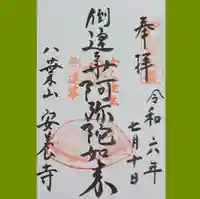 奉拝
令和六年
七月十日
倒蓮華阿弥陀如来
八葉山
安養寺